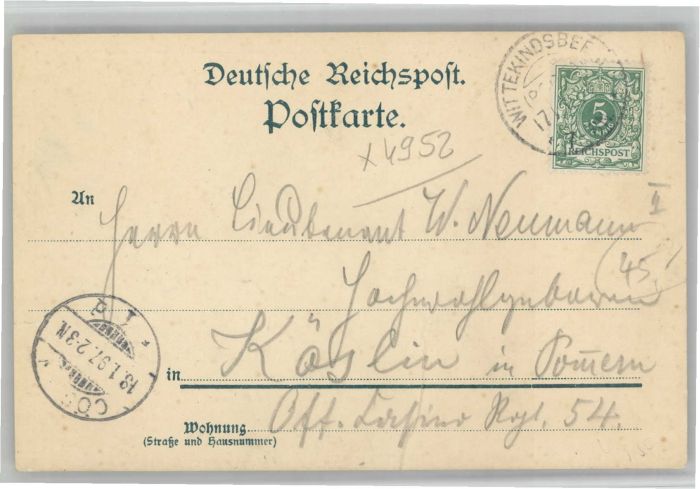 Deutsche Reichspost.
Postkarte.
WITTEKINDSBE
17
5
REICHSPOST
x4952
II
An
Herrn Lieutenant W. Neumann
45,
Hochwohlgeboren
in Köslin in Pomern
Off. Casino Rgt. 54.
Wohnung
(Straße und Hausnummer)
CÖS
18.1.97.2-3N.